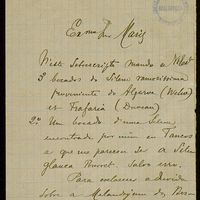 Exmo Snr Mariz
Neste sobrescripto mando a Velost
3 bocados do Silene ramosissima
proveniente do Algarve (Welw)
et Trafaria (Daveau)
2º Um bocado d'uma Silene
encontrada por mim em Tancos
a que me pareceu ser a Silene
glauca Pourret. Salvo erro.
Para esclarecer a duvida
sobre a Melandryum das Ber